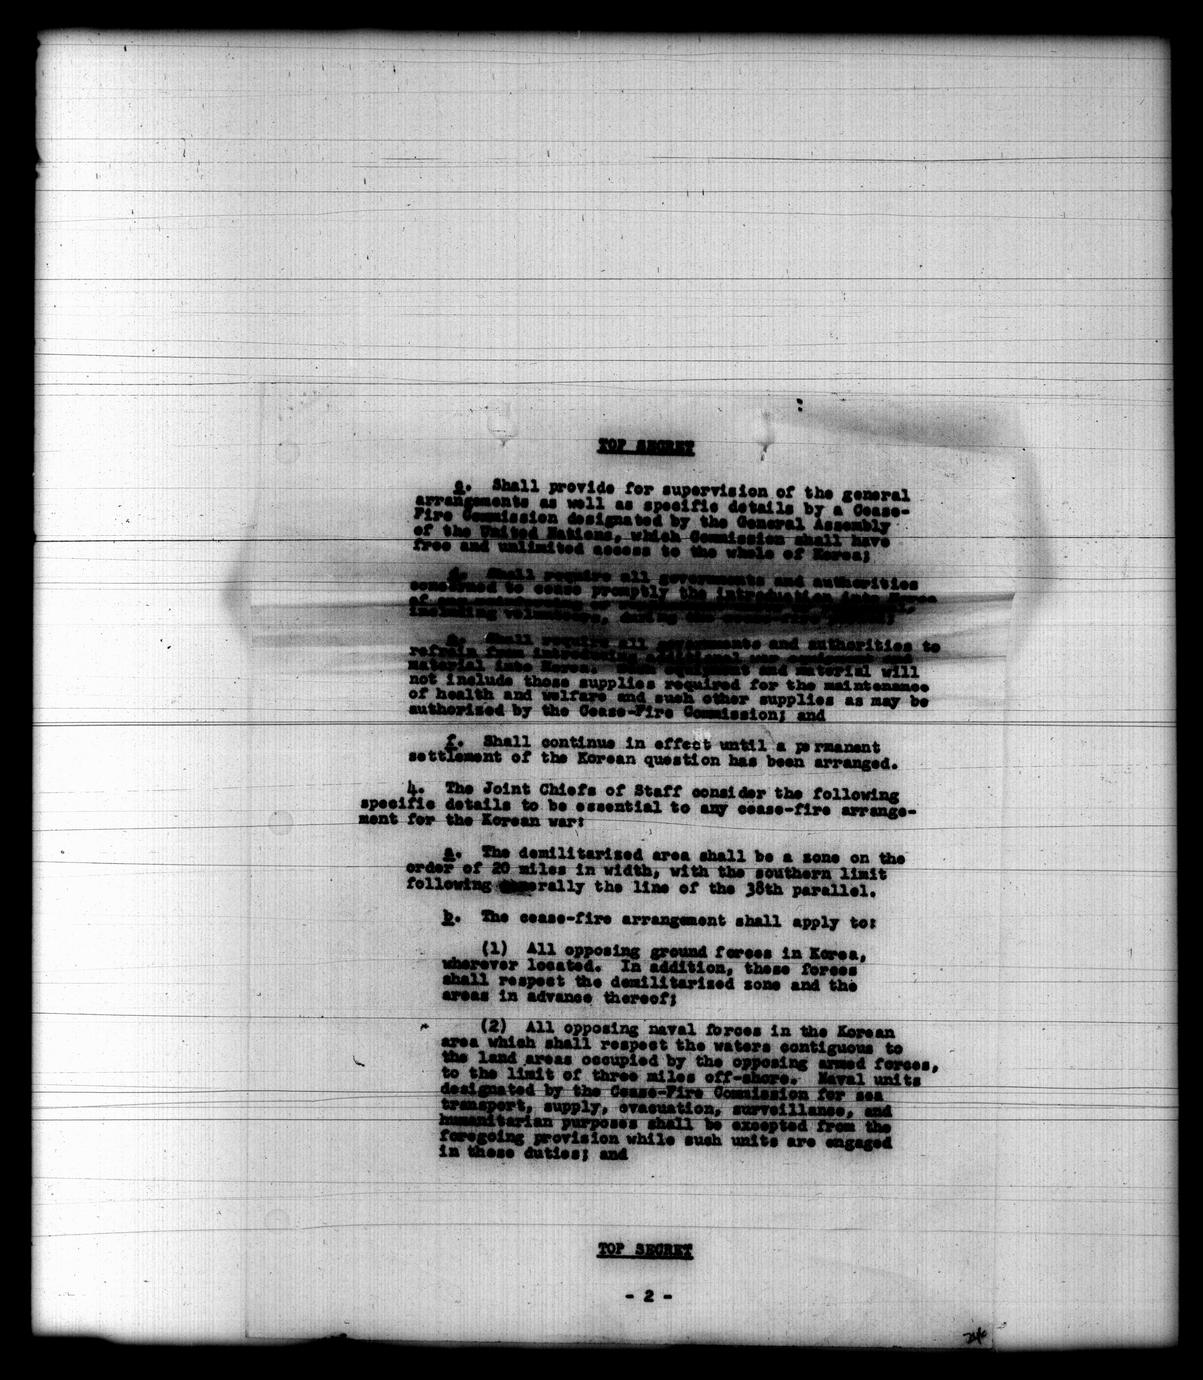 TOP SECRET
Shall provide for supervision of the general
arrangements as well as specific details by a Cease-
Fire Commission designated by the General Assembly
of the United Nations, which Commission shall have
free and unlimited access to the whole of Korea;
d. Shall require all governments and authorities
concerned to cease promptly the introduction into Korea
of
including volunteers, during the cease-fire period;
e. Shall require all governments and authorities to
refrain from introducing additional war equipment and
material into Korea. Such equipment and material will
not include those supplies required for the maintenance
of health and welfare and such other supplies as may be
authorized by the Cease-Fire Commission; and
f. Shall continue in effect until a permanent
settlement of the Korean question has been arranged.
4. The Joint Chiefs of Staff consider the following
specific details to be essential to any cease-fire arrange-
ment for the Korean war:
a. The demilitarized area shall be a zone on the
order of 20 miles in width, with the southern limit
following generally the line of the 38th parallel.
b. The cease-fire arrangement shall apply to:
(1) All opposing ground forces in Korea,
wherever located. In addition, these forces
shall respect the demilitarized zone and the
areas in advance thereof;
(2) All opposing naval forces in the Korean
area which shall respect the waters contiguous to
the land areas occupied by the opposing armed forces,
to the limit of three miles off-shore. Naval units
designated by the Cease-Fire Commission for sea
transport, supply, evacuation, surveillance, and
humanitarian purposes shall be excepted from the
foregoing provision while such units are engaged
in these duties; and
TOP SECRET
- 2 -